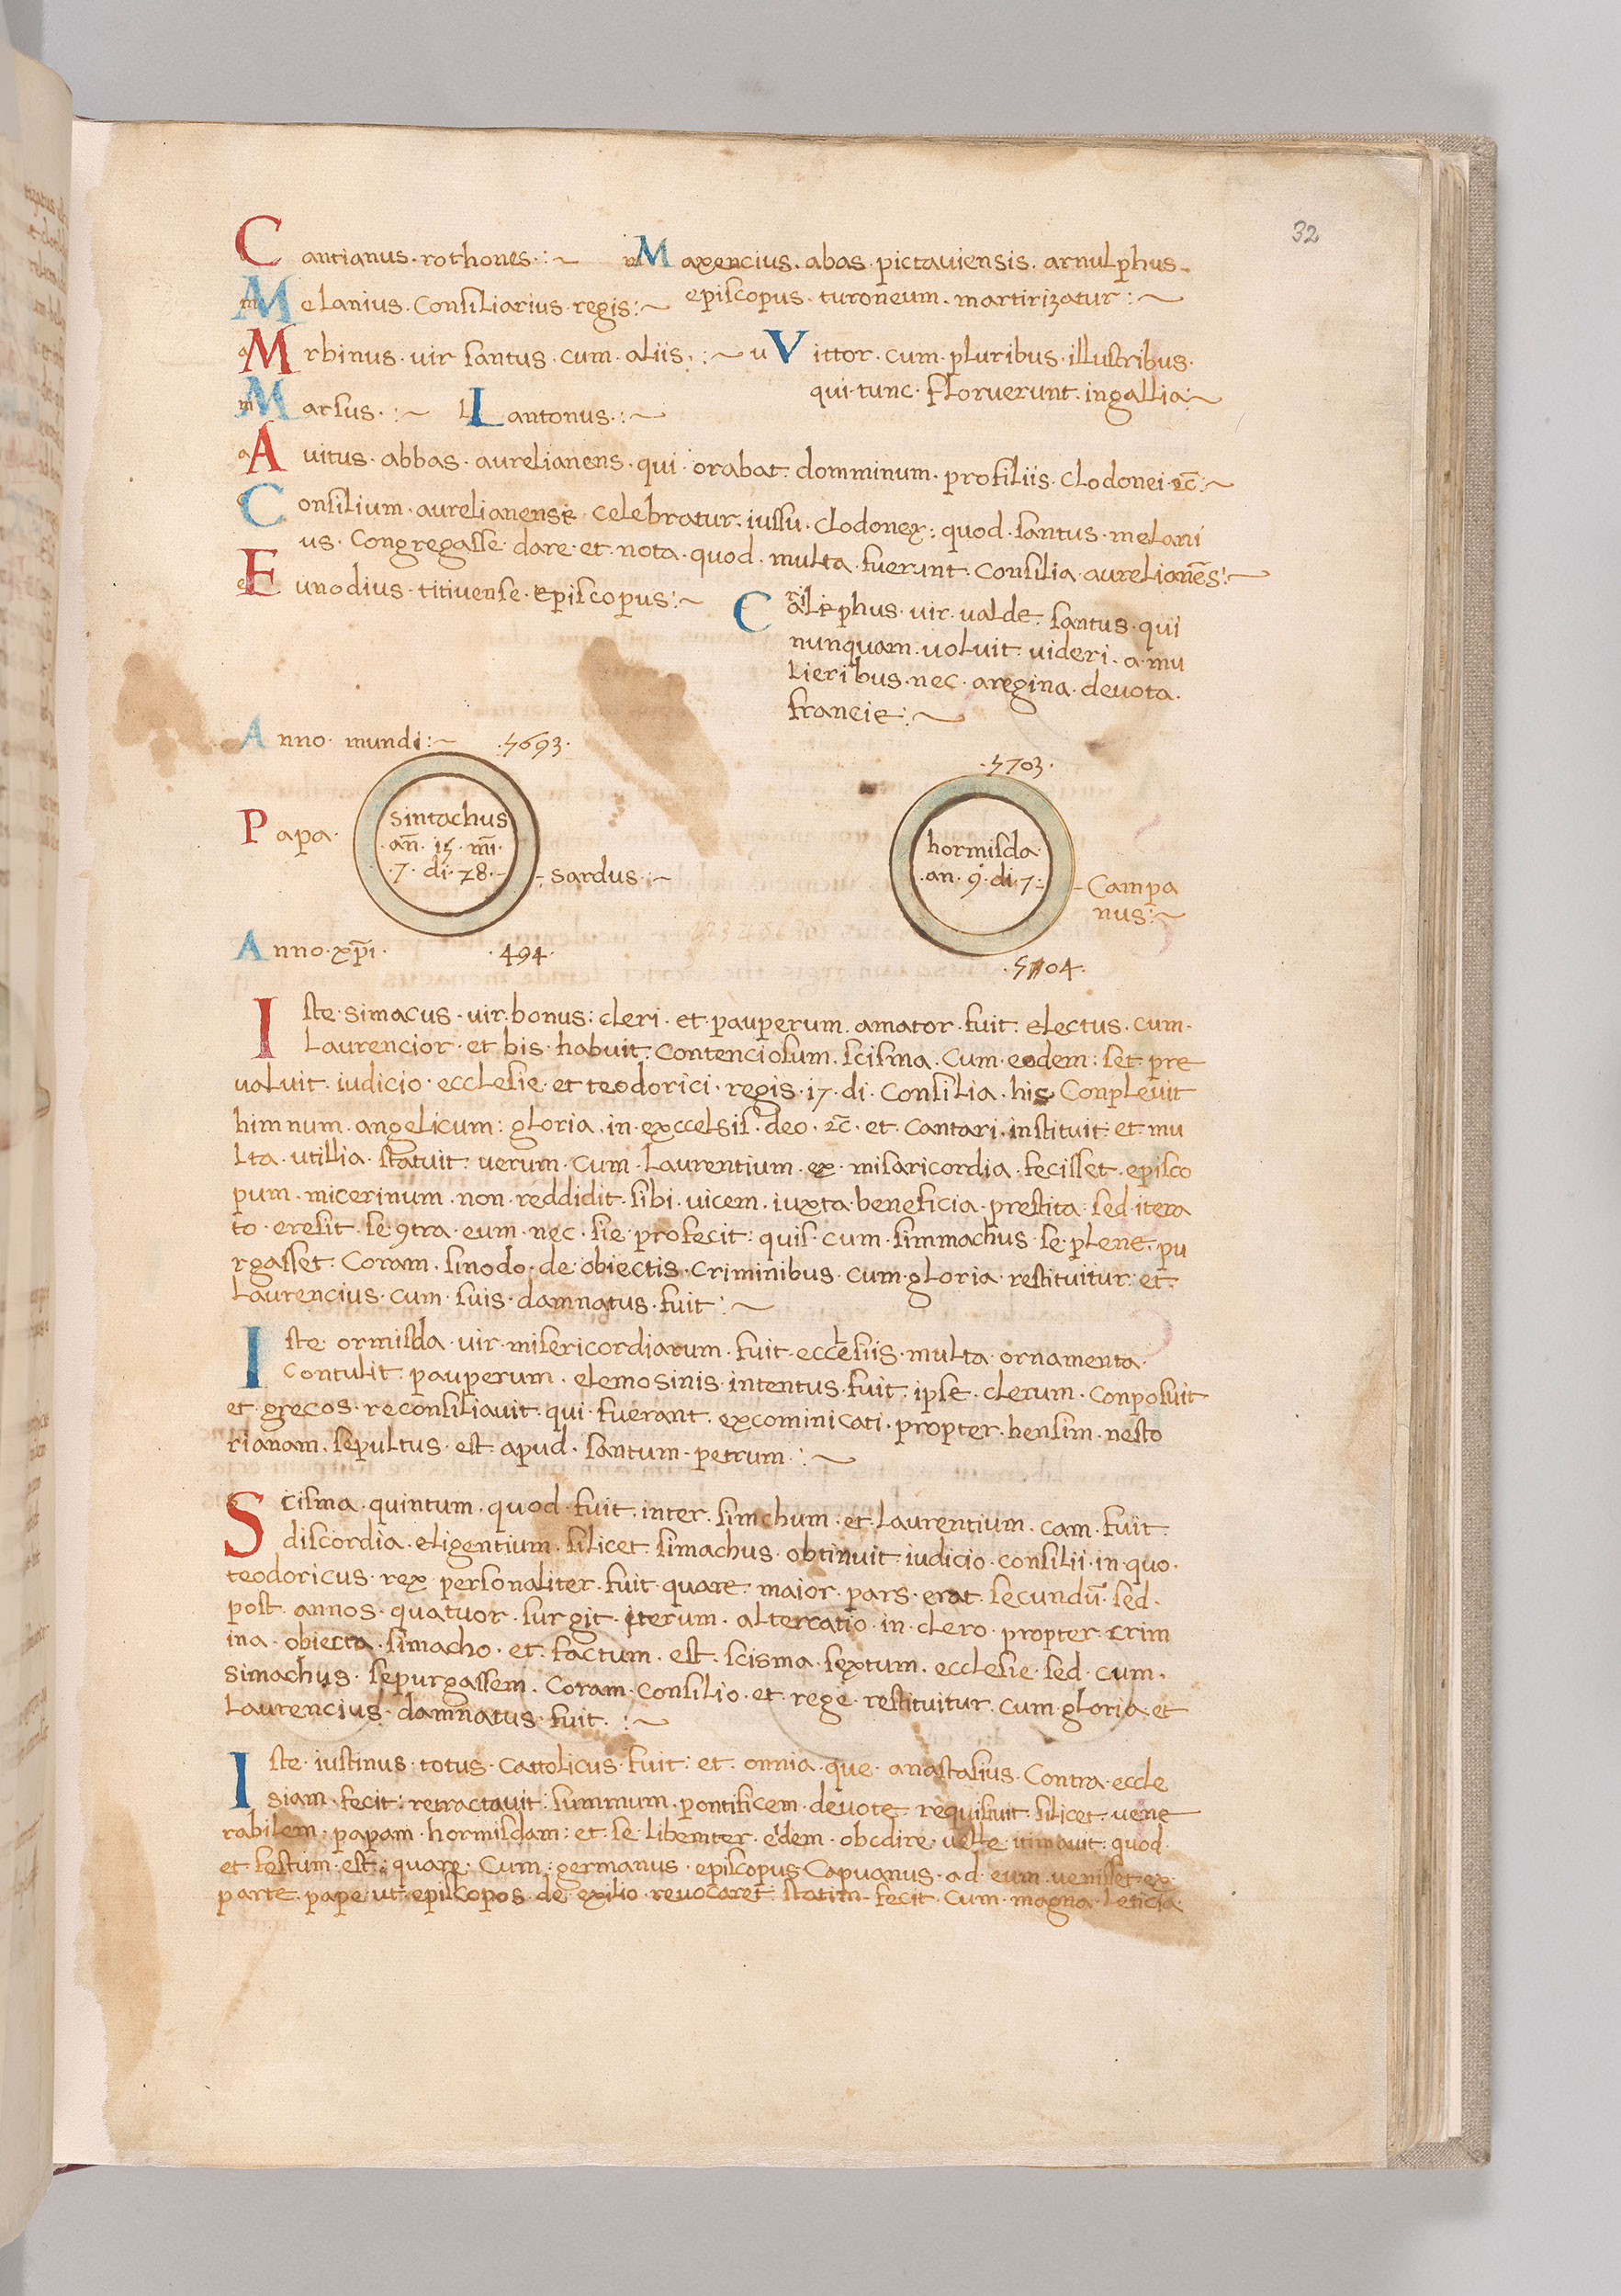 32
Cantianus · rothones :~
Maxencius · abas · pictauiensis · arnulphus ·
episcopus · turoneum · martirizatur :~
Melanius · Consiliarius · regis :~
Mrbinus · uir santus · cum · aliis · :~
Vittor · cum · pluribus · illustribus ·
qui · tunc · floruerunt · in gallia :~
Marsus · :~ Lantonus · :~
Auitus · abbas · aurelianens · qui · orabat · domminum · profiliis · Clodonei · ⁊c̄ :~
Consilium · aurelianense · celebratur · iussu · clodonex : quod · santus · melani
us · Congregasse · dare · et · nota · quod · multa · fuerunt · Consilia · aurelianēs :~
Eunodius · titiuense · episcopus :~
Calephus · uir · ualde · santus · qui
nunquam · uoluit · uideri · a · mu
lieribus · nec · aregina · deuota ·
francie :~
Anno · mundi :~ · 5693 ·
· 5703 ·
Papa ·
sintachus
· an̄ · 15 · m̄i ·
· 7 · di · 28 ·
sardus :~
hormisda ·
· an · 9 · di · 7 :
Campa
nus :~
Anno · xp̄i · · 494 ·
· 5704 ·
Iste · simacus · uir · bonus : cleri · et · pauperum · amator · fuit : electus · cum ·
Laurencior · et bis · habuit : Contenciosum · scisma · Cum · eodem : set · pre
ualuit · iudicio · ecclesie · et teodorici · regis · 17 · di · Consilia · his Conpleuit
himnum · angelicum : gloria · in · exccelsis · deo · ⁊c̄ · et · Cantari · instituit : et · mu
lta · utillia · statuit : uerum · cum · Laurentium · ex · misaricordia · fecisset · episco
pum · micerinum · non · reddidit · sibi · uicem · iuxta · beneficia · prestita · sed · itera
to · eresit · se · 9tra · eum · nec · sie · profecit : quis · cum · simmachus · se · plene · pu
rgasset · Coram · sinodo · de · obiectis · Criminibus · cum · gloria · restituitur : et ·
Laurencius · cum · suis · damnatus · fuit :~
Iste · ormisda · uir · misericordiarum · fuit · ecclesiis · multa · ornamenta ·
Contulit : pauperum · elemosinis · intentus · fuit : ipse · clerum · Conposuit
et · grecos · reconsiliauit · qui · fuerant · excominicati · propter · hensim · nesto
rianam · sepultus · est · apud · santum · petrum · :~
Scisma · quintum · quod · fuit · inter · simchum · et · Laurentium · cam · fuit ·
discordia · eligentium · silicet · simachus · obtinuit · iudicio · consilii · in · quo ·
teodoricus · rex · personaliter · fuit · quare · maior · pars · erat · secundū · sed ·
post · annos · quatuor · surgit · iterum · alterratio · in · clero · propter · crim
ina · obiecta · simacho · et · factum · est · scisma · sextum · ecclesie · sed · cum ·
simachus · sepurgassem · Coram · Consilio · et · rege · restituitur · cum · gloria · et
Laurencius · damnatus · fuit · :~
Iste · iustinus · totus · Cattolicus · fuit : et · omnia · que · anastasius · Contra · eccle
siam · fecit : retractauit : summum · pontificem · deuote · requisiuit · silicet · uene
rabilem · papam · hormisdam : et · se · libemter · e'dem · obedire · uelle · itimauit : quod ·
et · festum · est : quare · Cum · germanus · episcopus · Capuanus · ad · eum · uenisset · ex ·
parte · pape · ut · episcopos · de · exilio · reuocaret · statim · fecit · Cum · magna · leticia ·